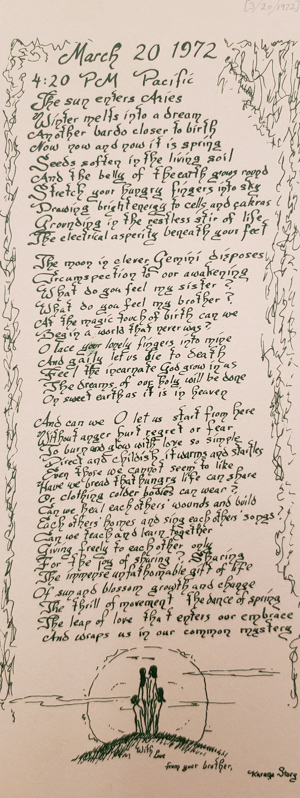 [3/20/1972]
March 20 1972
4:20 PM Pacific
The sun enters Aries
Winter melts into a dream
Another bardo closer to birth
Now now and now it is spring
Seeds soften in the living soil
And the belly of the earth grows round
Stretch your hungry fingers into sky
Drawing bright energy to cells and çakras
Grounding in the restless stir of life
The electrical asperity beneath your feet
The moon in clever Gemini disposes
Circumspection to our awakening
What do you feel my sister ?
What do you feel my brother ?
At the magic touch of birth can we
Begin a world that never was ?
O lace your lonely fingers into mine
And gaily let us die to death
Feel the incarnate God grow in us
The dreams of our holy will be done
On sweet earth as it is in heaven
And can we O let us start from here
Without anger hurt regret or fear
To burn and glow with love so simple
Direct and childish it warms and startles
Even those we cannot seem to like
Have we bread that hungry life can share
Or clothing colder bodies can wear ?
Can we heal each others' wounds and build
Each others' homes and sing each others' songs ?
Can we teach and learn together
Giving freely to each other only
For the joy of sharing Sharing
The immense unfathomable gift of life
Of sun and blossom growth and change
The thrill of movement the dance of spring
The leap of love that enters our embrace
And wraps us in our common mystery
With love
from your brother,